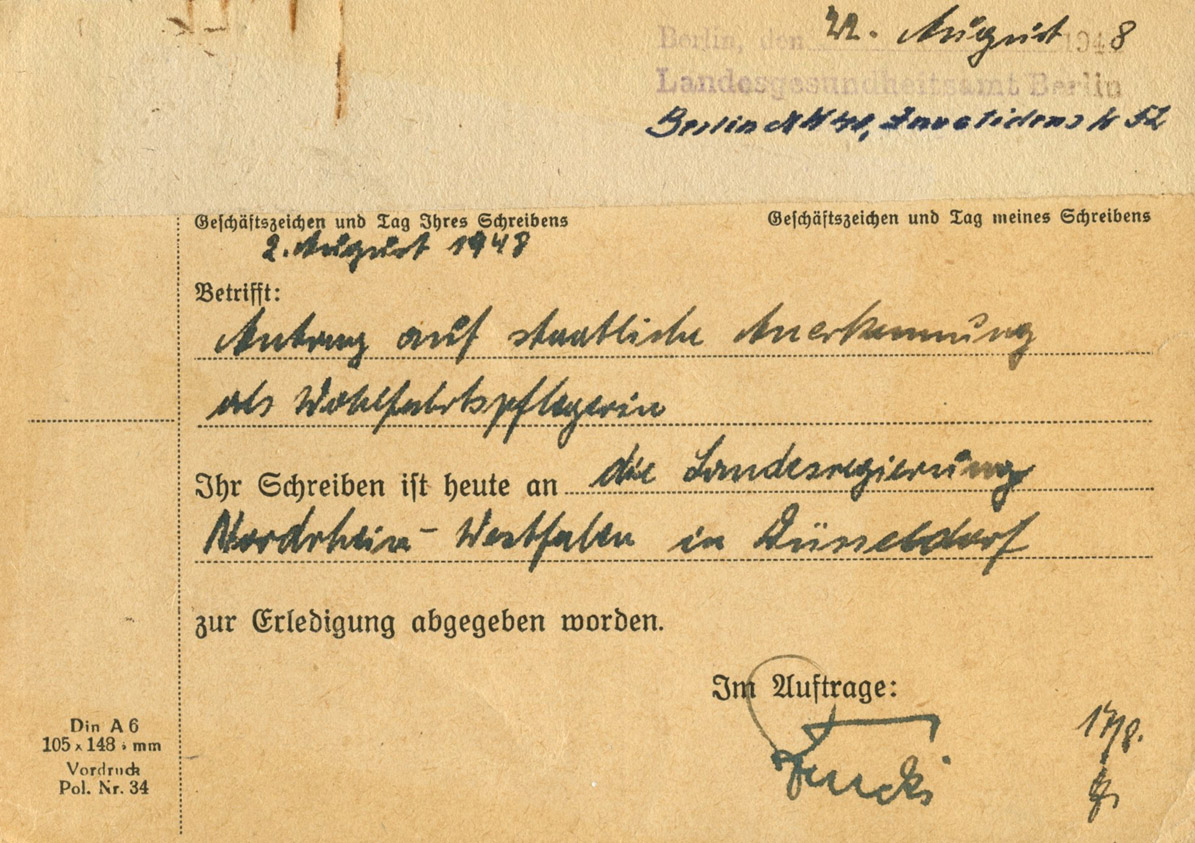 Berlin, den 22. August 1948
Landesgesundheitsamt Berlin
Berlin NW 40, Invalidenstr 52
Geschäftszeichen und Tag Ihres Schreibens
Geschäftszeichen und Tag meines Schreibens
2. August 1948
Betrifft:
Antrag auf staatliche Anerkennung
als Wohlfahrtspflegerin
Ihr Schreiben ist heute an die Landesregierung
Nordrhein-Westfalen in Düsseldorf
zur Erledigung abgegeben worden.
Im Auftrage:
17/8.
Din A 6
105 x 148 mm
Vordruck
Pol. Nr. 34